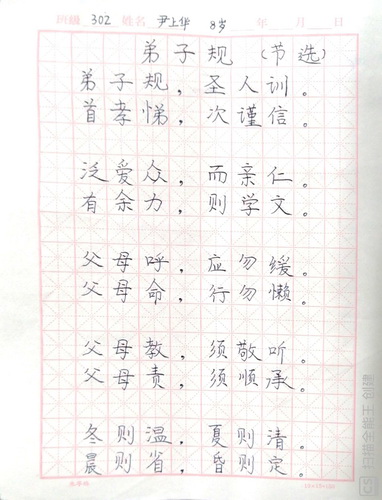 班级 302 姓名 尹上华 8岁 年 月 日
弟子规 (节选)
弟子规，圣人训。
首孝悌，次谨信。
泛爱众，而亲仁。
有余力，则学文。
父母呼，应勿缓。
父母命，行勿懒。
父母教，须敬听。
父母责，须顺承。
冬则温，夏则清。
晨则省，昏则定。